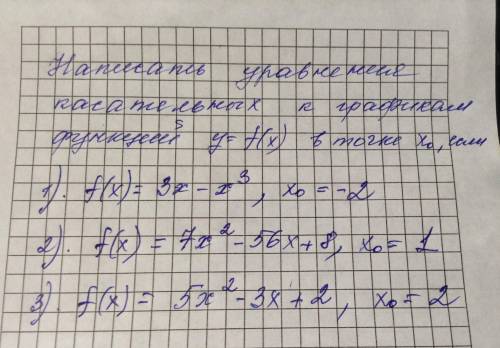 Написать уравнения
касательных к графикам
функций y = f(x) в точке x₀, если
1). f(x) = 3x - x³, x₀ = -2
2). f(x) = 7x² - 56x + 8, x₀ = 1
3). f(x) = 5x² - 3x + 2, x₀ = 2